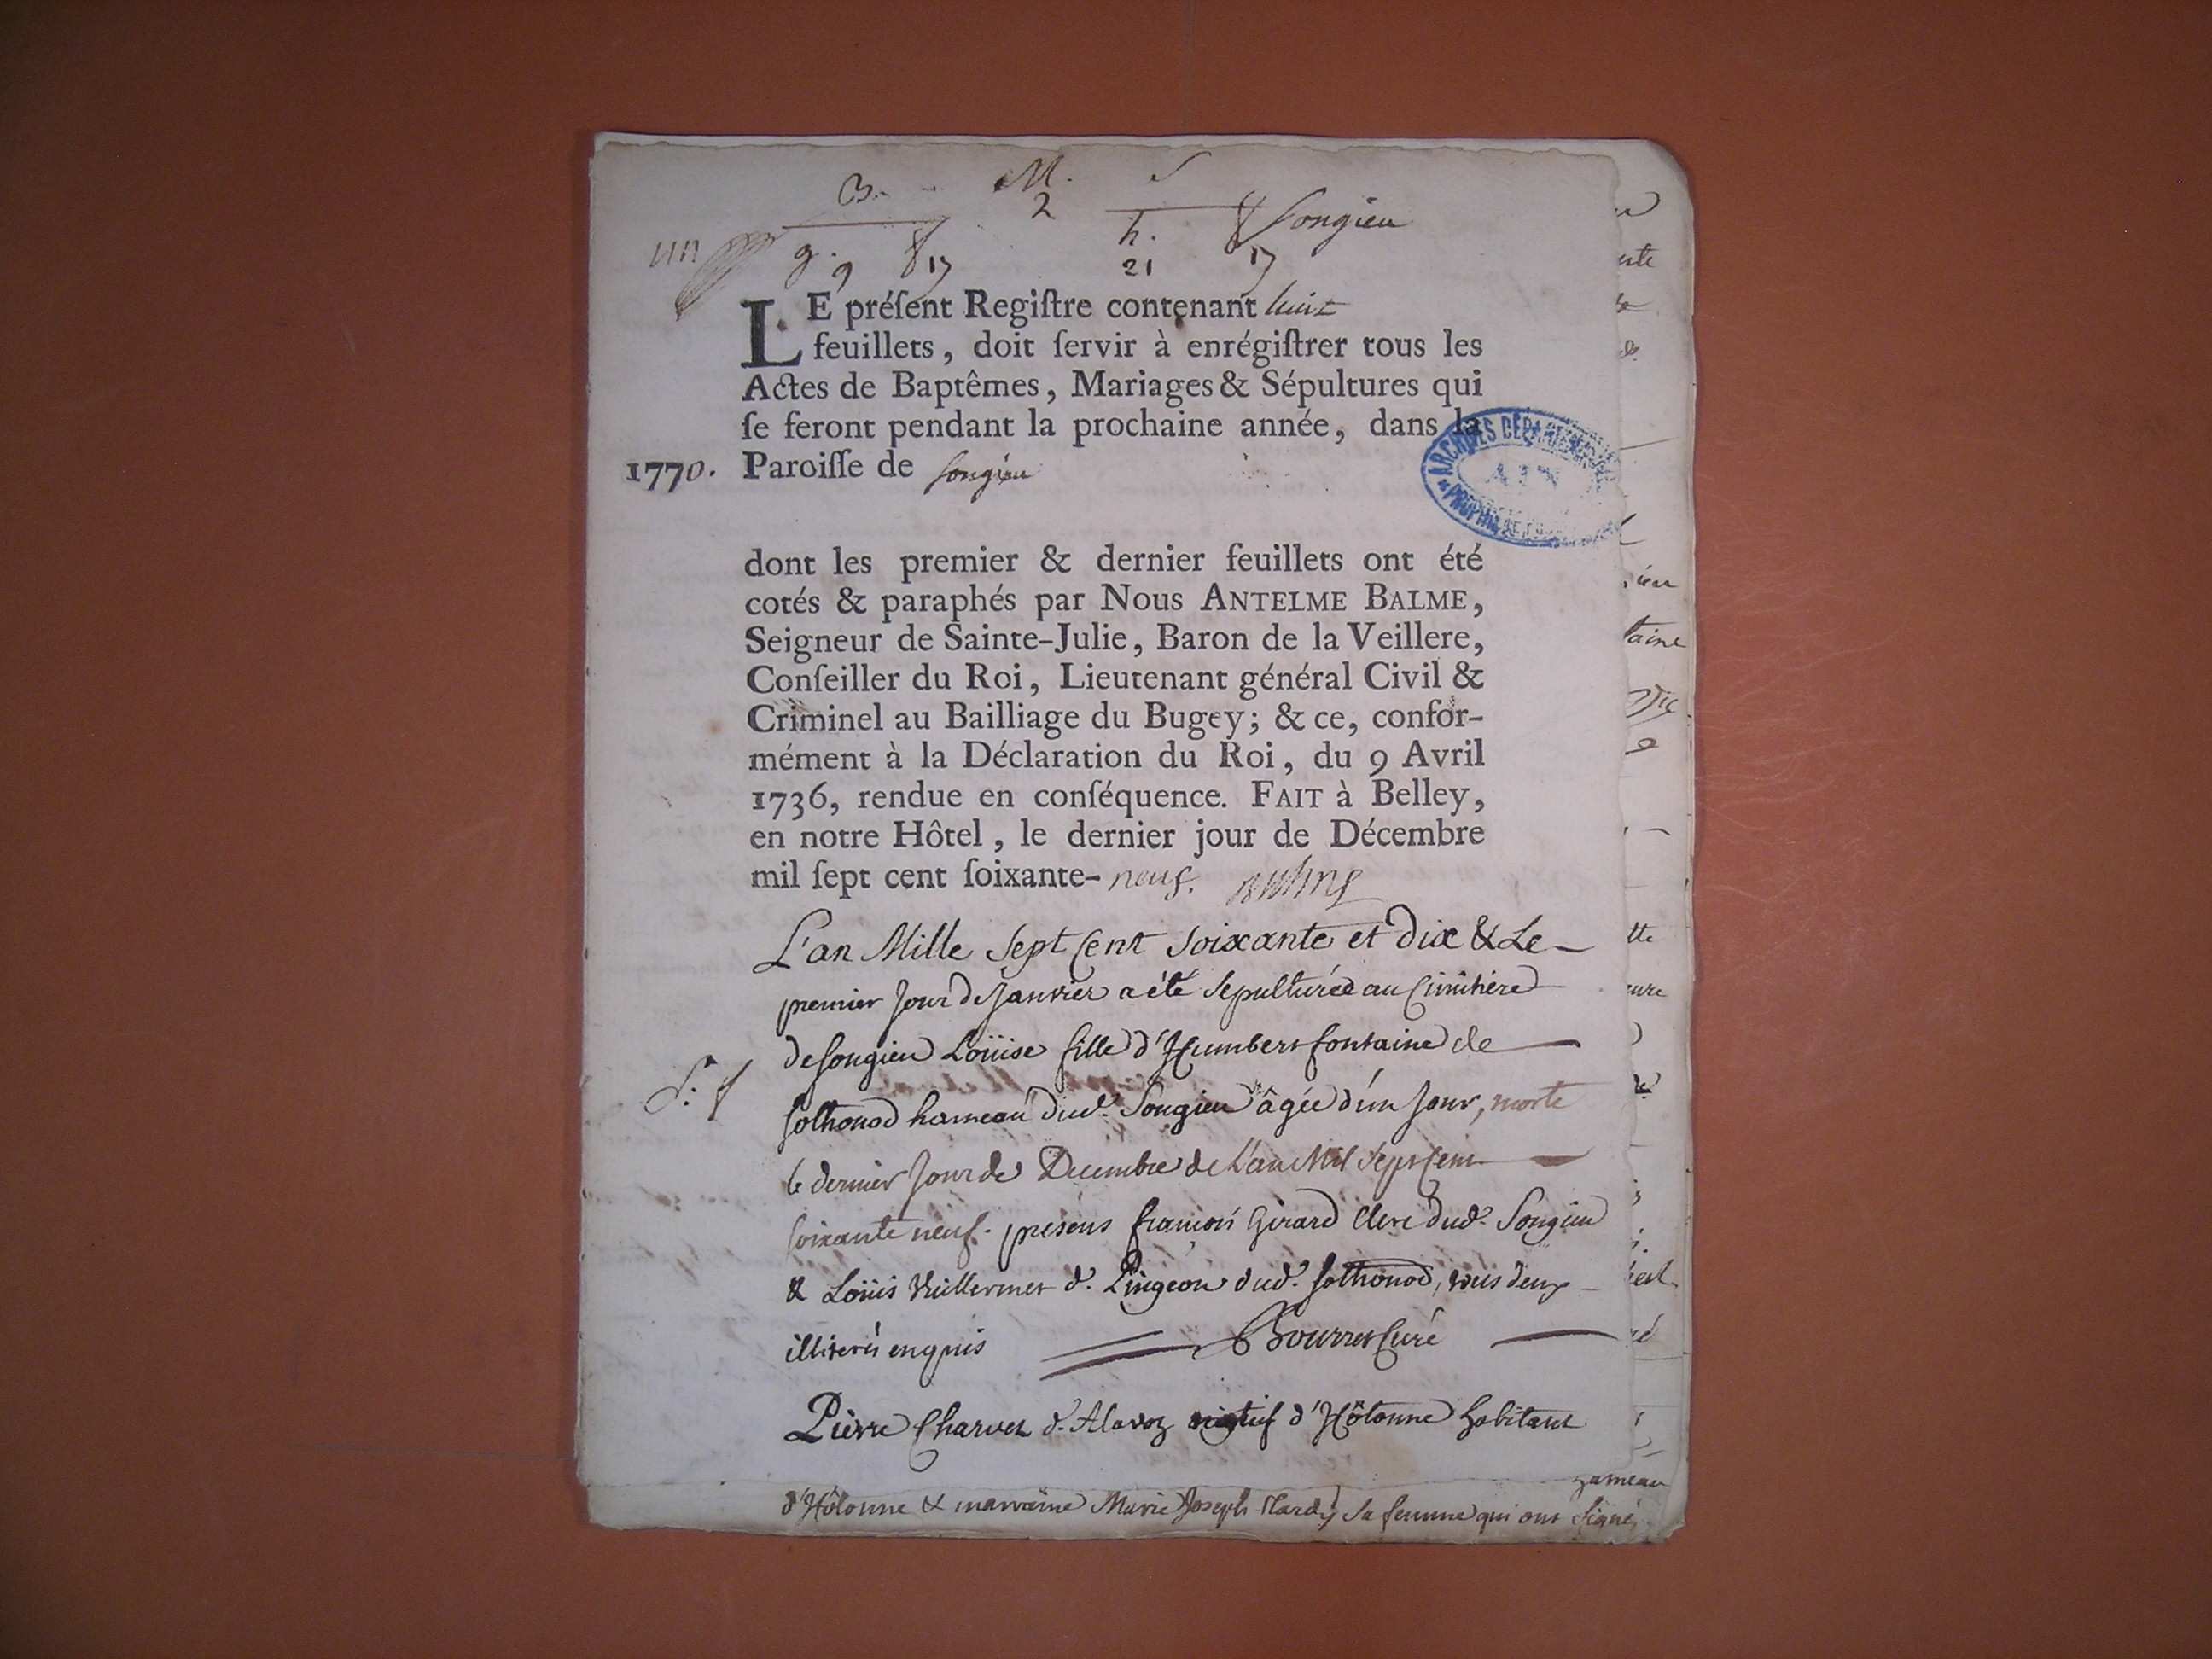 B. M. S
2
g. f h. f Songieu
9 17 21 17
LE préſent Regiſtre contenant huit
feuillets, doit ſervir à enrégiſtrer tous les
Actes de Baptêmes, Mariages & Sépultures qui
ſe feront pendant la prochaine année, dans la
1770. Paroiſſe de Songieu
ARCHIVES DÉPARTEMENTALES
AIN
dont les premier & dernier feuillets ont été
cotés & paraphés par Nous ANTELME BALME,
Seigneur de Sainte-Julie, Baron de la Veillere,
Conſeiller du Roi, Lieutenant général Civil &
Criminel au Bailliage du Bugey; & ce, confor-
mément à la Déclaration du Roi, du 9 Avril
1736, rendue en conſéquence. FAIT à Belley,
en notre Hôtel, le dernier jour de Décembre
mil ſept cent ſoixante- neuf.
L'an Mille Sept Cent Soixante et Dix & Le
premier Jour de Janvier a été Sépulturée au Cimitière
de Songieu Loüise fille d'Humbert fontaine de
S. f Sothonod hameau dud. Songieu âgée d'un Jour, morte
le dernier Jour de Decembre de L'an Mil Sept Cent
Soixante neuf. presens françois Girard Clerc dud. Songieu
& Loüis Vuillermet d. Pingeon dud. Sothonod, tous deux
illiterés enquis Bourret Curé
Pierre Charvet d. Alavoz natif d'Hôtonne habitant
hameau
d'Hôtonne & marraine Marie Joseph Tardy Sa femme qui ont Signé